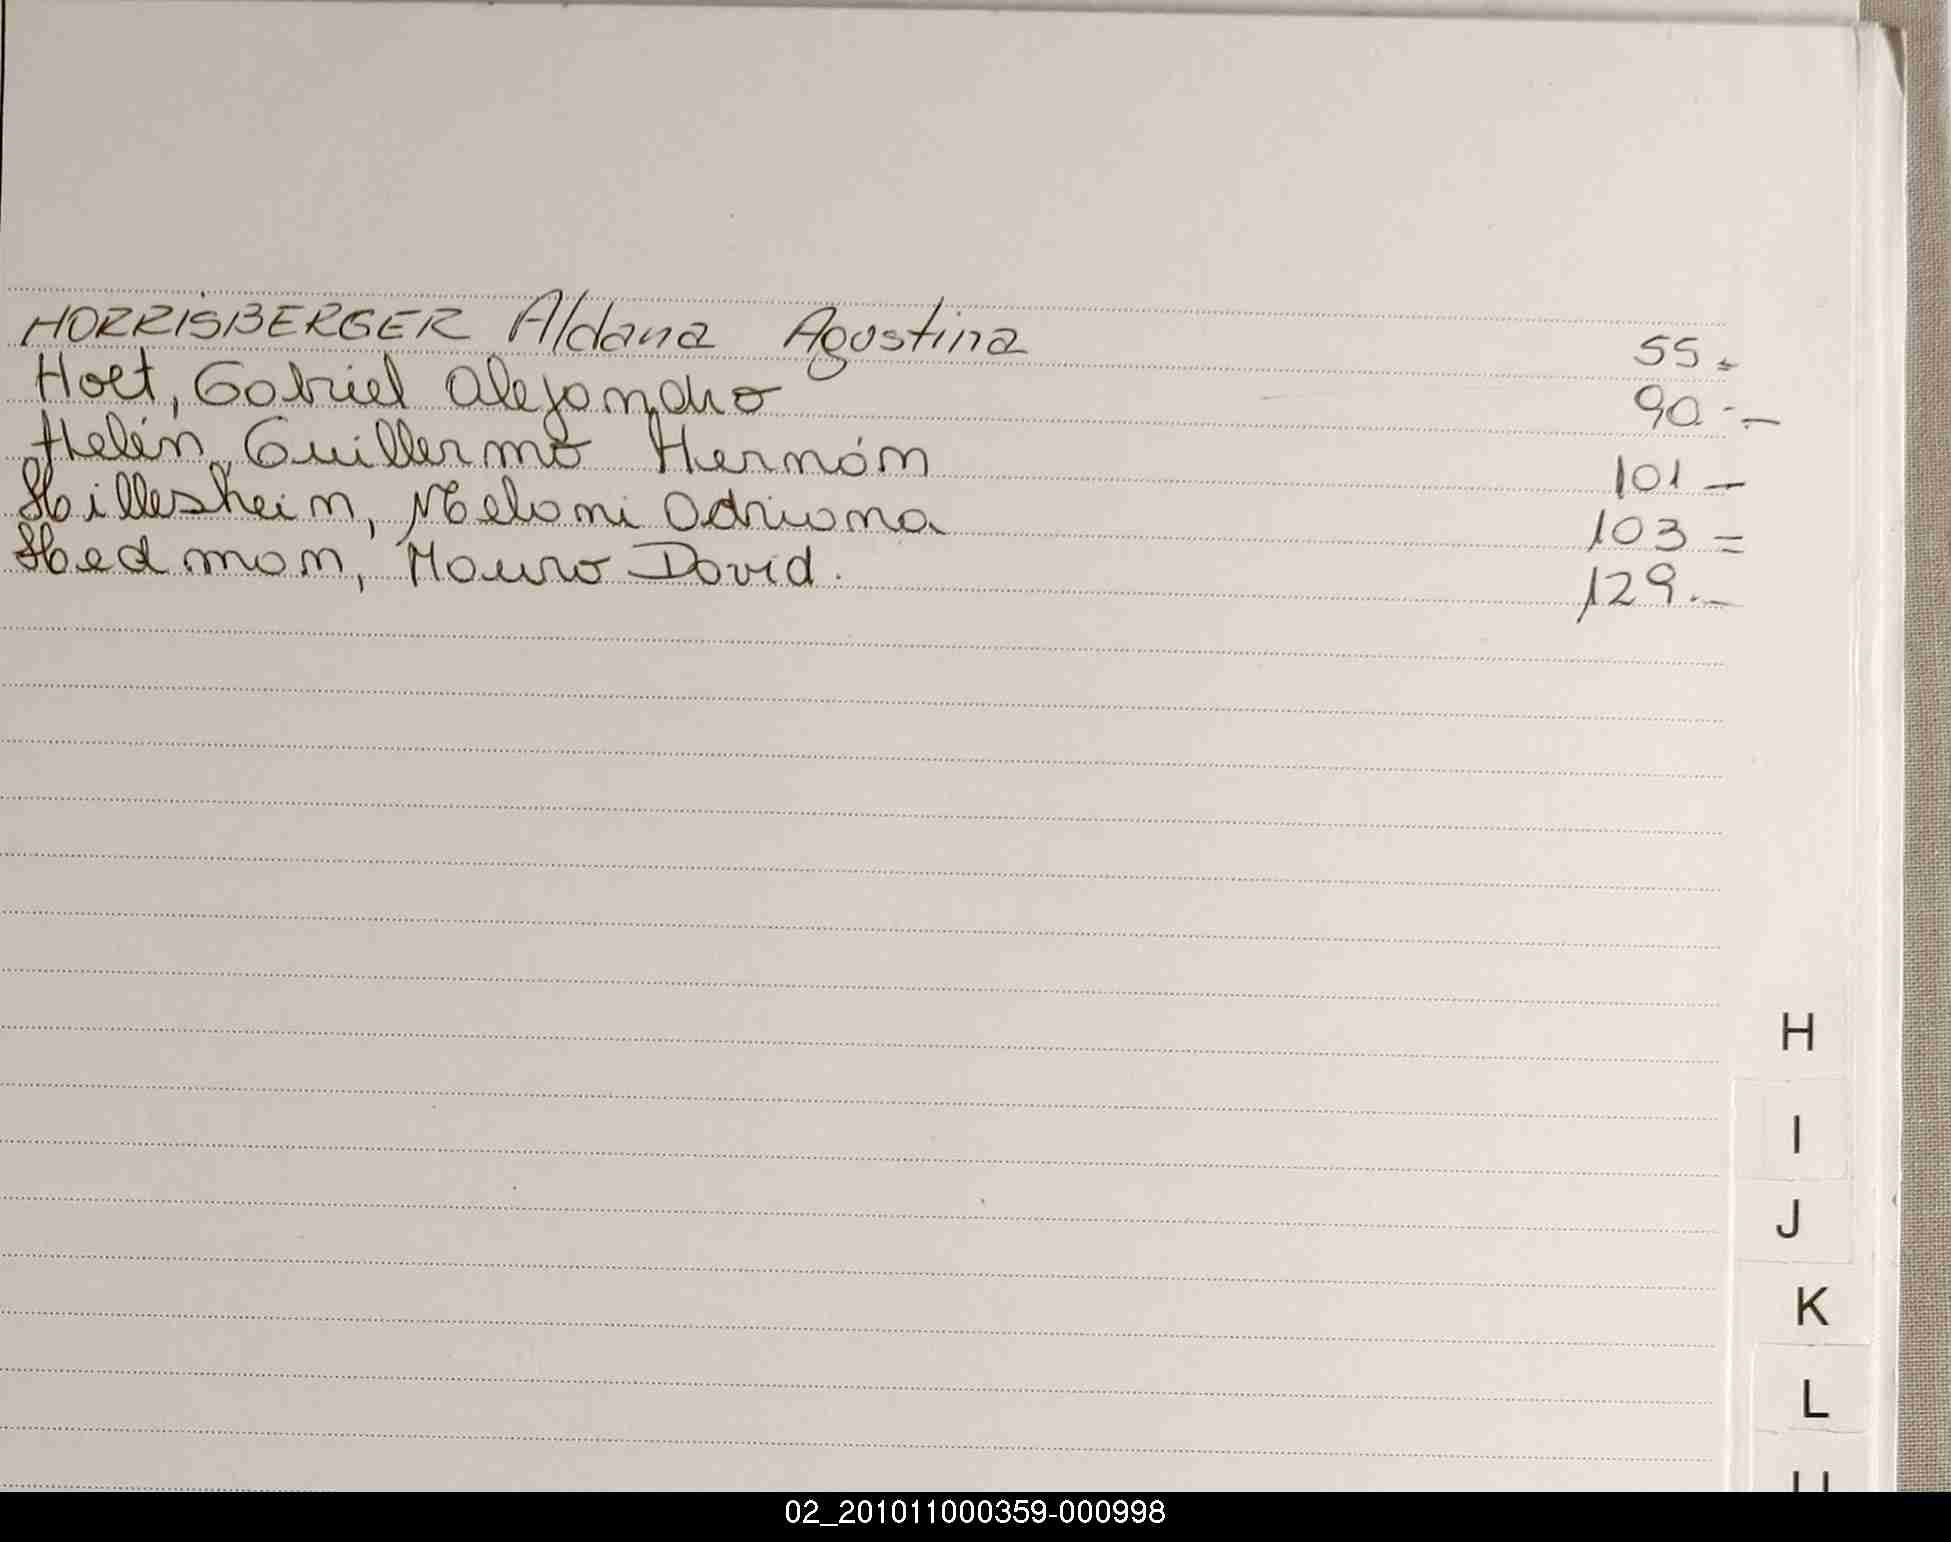 HORRISBERGER Aldana Agustina 55.-
Holt, Gabriel Alejandro 90.-
Helén, Guillermo Hernán 101-
Hillesheim, Melani Adriana 103=
Hedman, Mauro David. 129.-
H
I
J
K
L
02_201011000359-000998